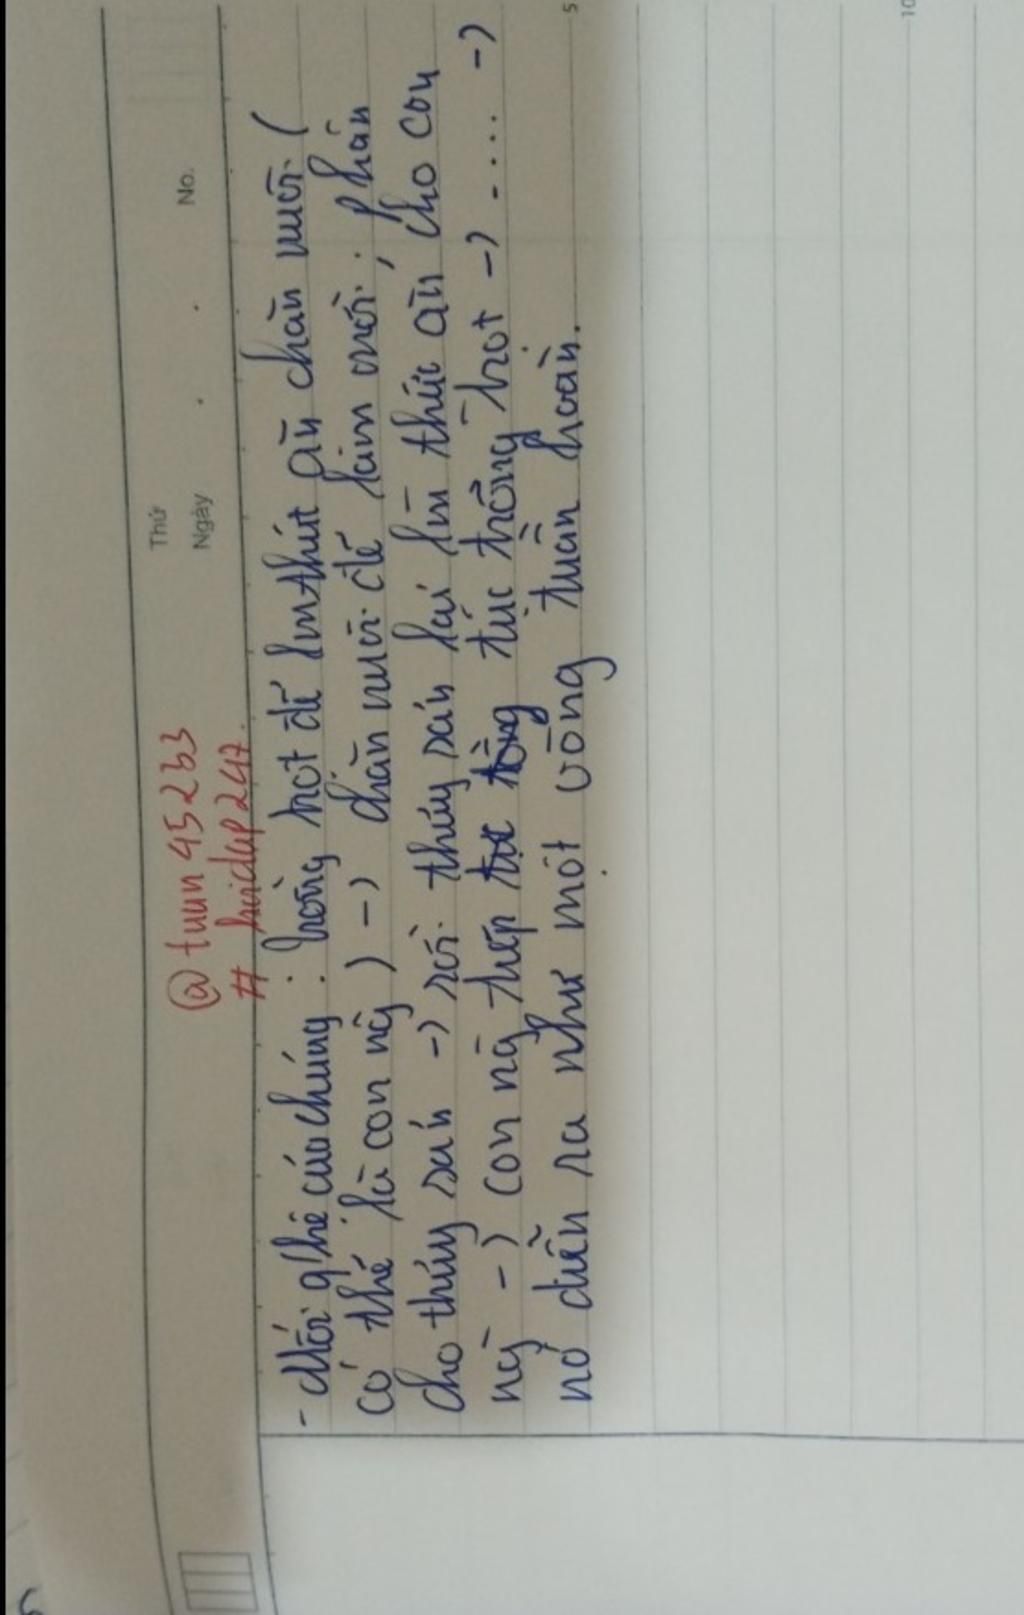 Thứ
Ngày
No.
@ tuun 45263
# hoidap247.
- Mối qhệ của chúng : trồng trọt để làm thức ăn chăn nuôi (
có thể là con ng ) -) chăn nuôi để làm mới ; phân
cho thủy sản -) rồi thủy sản lại làm thức ăn cho con
ng -) con ng tiếp tục trồng trọt -) .... -)
nó diễn ra như một vòng tuần hoàn.
5
10